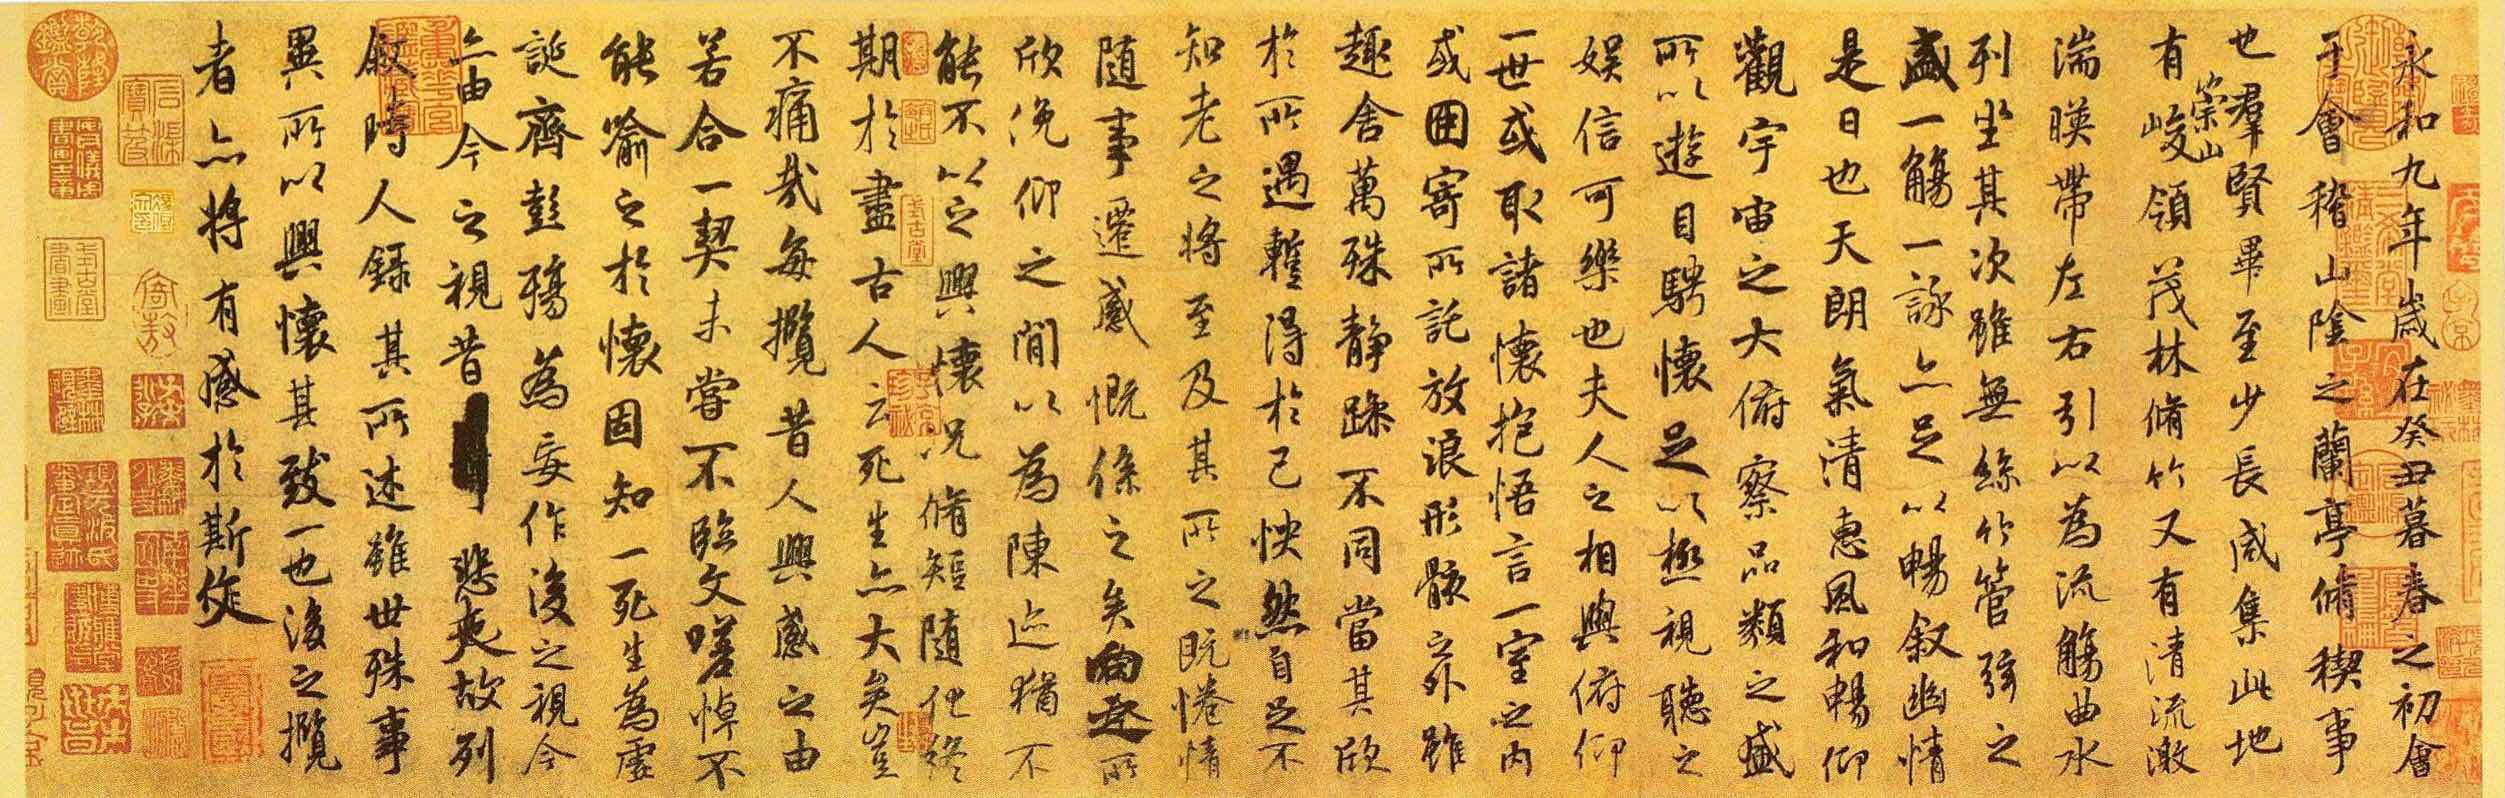 永和九年歲在癸丑暮春之初會
于會稽山陰之蘭亭脩稧事
也羣賢畢至少長咸集此地
有崇山峻領茂林脩竹又有清流激
湍暎帶左右引以為流觴曲水
列坐其次雖無絲竹管弦之
盛一觴一詠亦足以暢敘幽情
是日也天朗氣清惠風和暢仰
觀宇宙之大俯察品類之盛
所以遊目騁懷足以極視聽之
娛信可樂也夫人之相與俯仰
一世或取諸懷抱悟言一室之內
或因寄所託放浪形骸之外雖
趣舍萬殊靜躁不同當其欣
於所遇暫得於己怏然自足不
知老之將至及其所之既惓情
隨事遷感慨係之矣向之所
欣俛仰之閒以為陳迹猶不
能不以之興懷況脩短隨化終
期於盡古人云死生亦大矣豈
不痛哉每攬昔人興感之由
若合一契未嘗不臨文嗟悼不
能喻之於懷固知一死生為虛
誕齊彭殤為妄作後之視今
亦由今之視昔悲夫故列
敘時人錄其所述雖世殊事
異所以興懷其致一也後之攬
者亦將有感於斯文
乾隆鑑賞